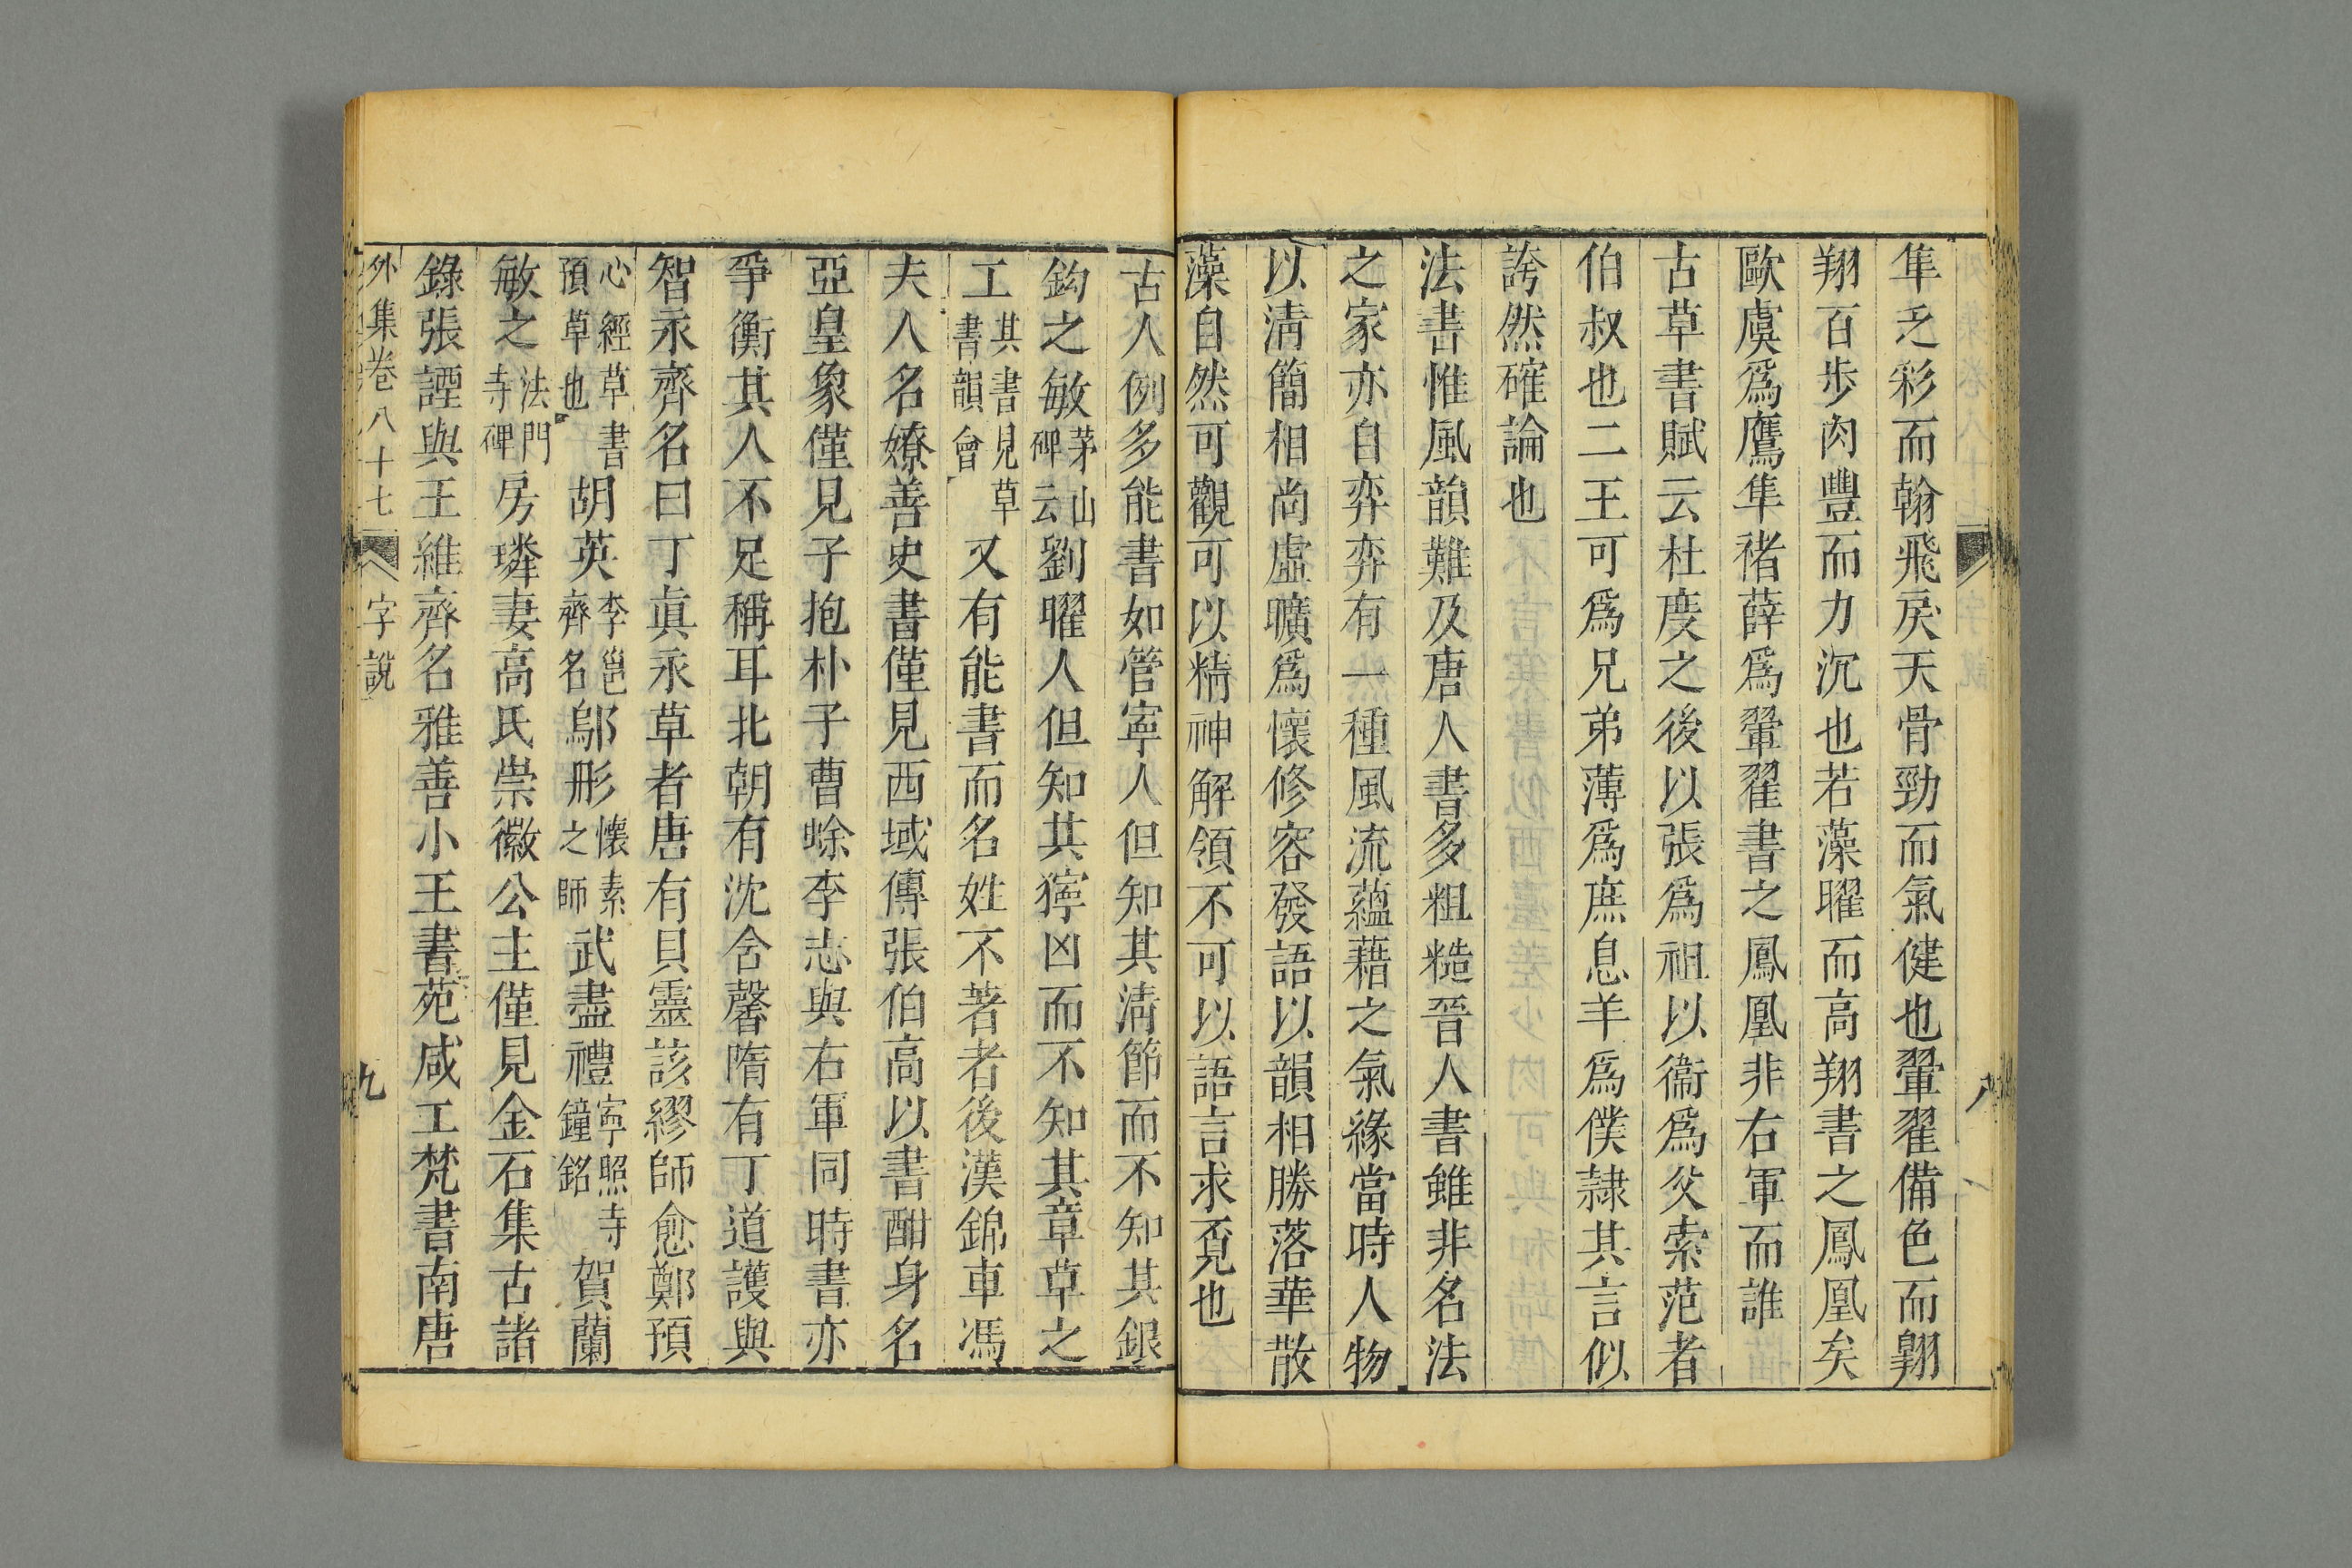 隼乏彩而翰飛戾天骨勁而氣健也翬翟備色而翶
翔百步肉豐而力沉也若藻曜而高翔書之鳳凰矣
歐虞爲鷹隼褚薛爲翬翟書之鳳凰非右軍而誰
古草書賦云杜度之後以張爲祖以衞爲父索范者
伯叔也二王可爲兄弟薄爲庶息羊爲僕隷其言似
誇然確論也
法書惟風韻難及唐人書多粗糙晉人書雖非名法
之家亦自弈弈有一種風流蘊藉之氣緣當時人物
以淸簡相尚虛曠爲懷修容發語以韻相勝落華散
藻自然可觀可以精神解領不可以語言求覓也
古人例多能書如管寧人但知其淸節而不知其銀
鈎之敏茅山碑云劉曜人但知其獰凶而不知其章草之
工其書見草書韻會又有能書而名姓不著者後漢錦車馮
夫人名嫽善史書僅見西域傳張伯高以書酣身名
亞皇象僅見于抱朴子曹蜍李志與右軍同時書亦
爭衡其人不足稱耳北朝有沈舍馨隋有丁道護與
智永齊名曰丁眞永草者唐有貝靈該繆師愈鄭預
心經草書預草也胡英李邕齊名鄔彤懷素之師武盡禮寧照寺鐘銘賀蘭
敏之法門寺碑房璘妻高氏崇徽公主僅見金石集古諸
錄張諲與王維齊名雅善小王書苑咸工梵書南唐
外集卷八十七 字說 九